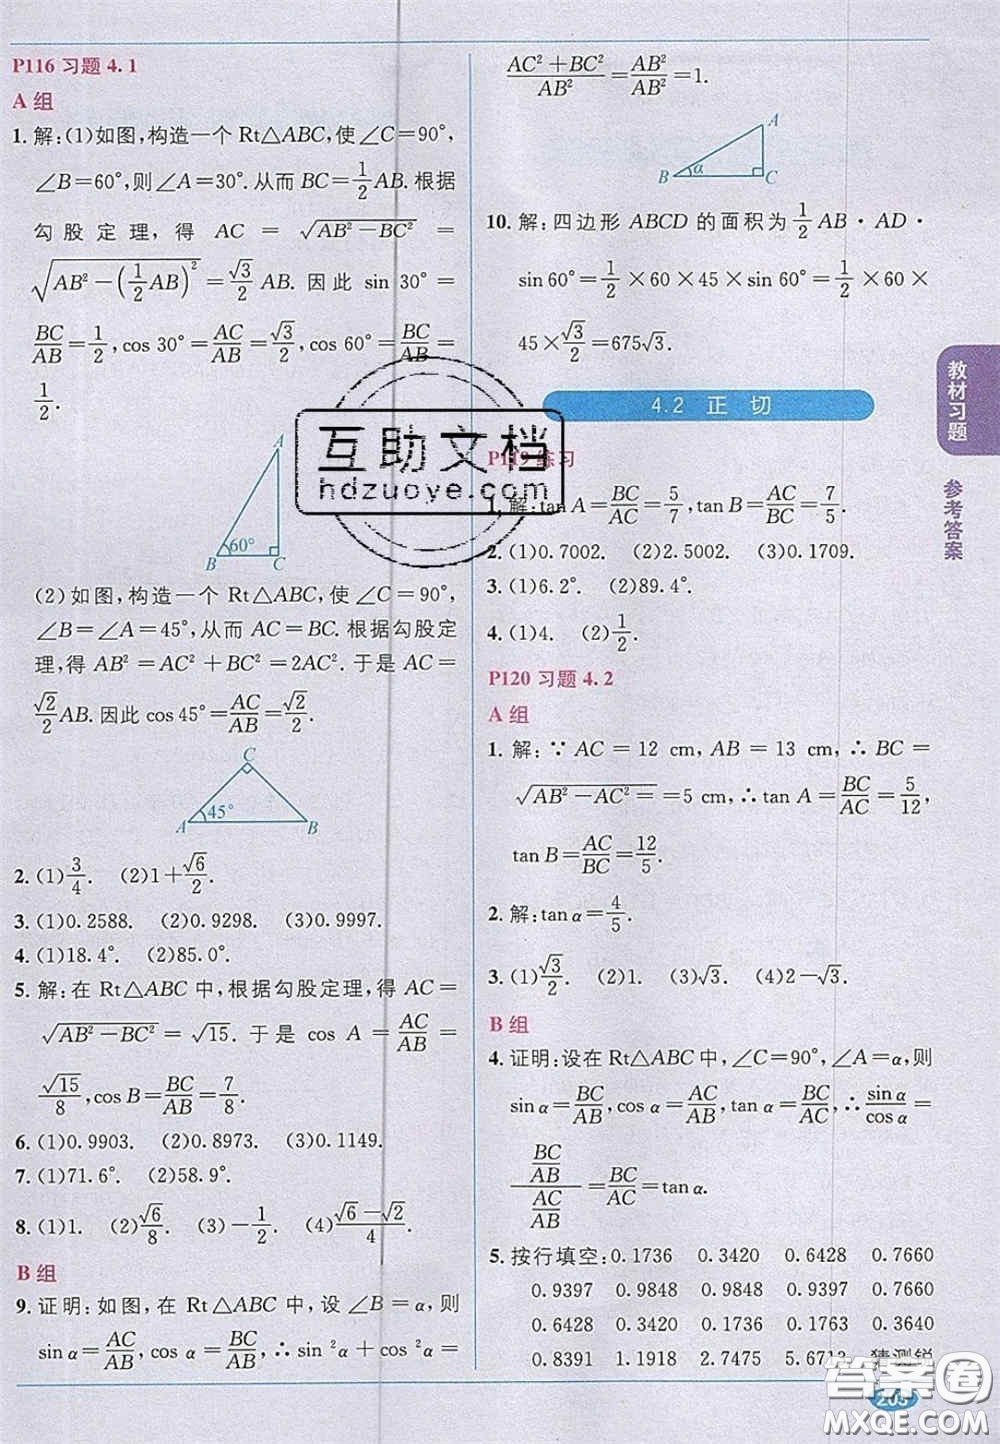 P116 习题 4.1
A 组
1. 解:(1)如图,构造一个 Rt△ABC,使∠C=90°,
∠B=60°,则∠A=30°.从而 BC=1/2AB.根据
勾股定理,得 AC = √(AB²−BC²) =
√(AB²−(1/2AB)²)=√3/2AB.因此 sin 30°=
BC/AB=1/2,cos 30°=AC/AB=√3/2,cos 60°=BC/AB=
1/2.
A
60°
B C
(2)如图,构造一个 Rt△ABC,使∠C=90°,
∠B=∠A=45°,从而 AC=BC.根据勾股定
理,得 AB²=AC²+BC²=2AC².于是 AC=
√2/2AB.因此 cos 45°=AC/AB=√2/2.
C
45°
A B
2. (1)3/4. (2)1+√6/2.
3. (1)0.2588. (2)0.9298. (3)0.9997.
4. (1)18.4°. (2)85.0°.
5. 解:在 Rt△ABC 中,根据勾股定理,得 AC=
√(AB²−BC²)=√15. 于是 cos A=AC/AB=
√15/8,cos B=BC/AB=7/8.
6. (1)0.9903. (2)0.8973. (3)0.1149.
7. (1)71.6°. (2)58.9°.
8. (1)1. (2)√6/8. (3)−1/2. (4)(√6−√2)/4.
B 组
9. 证明:如图,在 Rt△ABC 中,设∠B=α,则
sin α=AC/AB,cos α=BC/AB,∴sin²α+cos²α=
(AC²+BC²)/AB²=AB²/AB²=1.
A
α
B C
10. 解:四边形 ABCD 的面积为1/2AB·AD·
sin 60°=1/2×60×45×sin 60°=1/2×60×
45×√3/2=675√3.
4.2 正 切
P119 练习
1. 解:tan A=BC/AC=5/7,tan B=AC/BC=7/5.
2. (1)0.7002. (2)2.5002. (3)0.1709.
3. (1)6.2°. (2)89.4°.
4. (1)4. (2)1/2.
P120 习题 4.2
A 组
1. 解:∵AC=12 cm,AB=13 cm,∴BC=
√(AB²−AC²=)=5 cm,∴tan A=BC/AC=5/12,
tan B=AC/BC=12/5.
2. 解:tan α=4/5.
3. (1)√3/2. (2)1. (3)√3. (4)2−√3.
B 组
4. 证明:设在 Rt△ABC 中,∠C=90°,∠A=α,则
sin α=BC/AB,cos α=AC/AB,tan α=BC/AC,∴sin α/cos α=
(BC/AB)/(AC/AB)=BC/AC=tan α.
5. 按行填空:0.1736 0.3420 0.6428 0.7660
0.9397 0.9848 0.9848 0.9397 0.7660
0.6428 0.3420 0.1736 0.1763 0.3640
0.8391 1.1918 2.7475 5.6713 猜测锐
教材习题
参考答案
互助文档
hdzuoye.com
答案圈
MXQE.COM